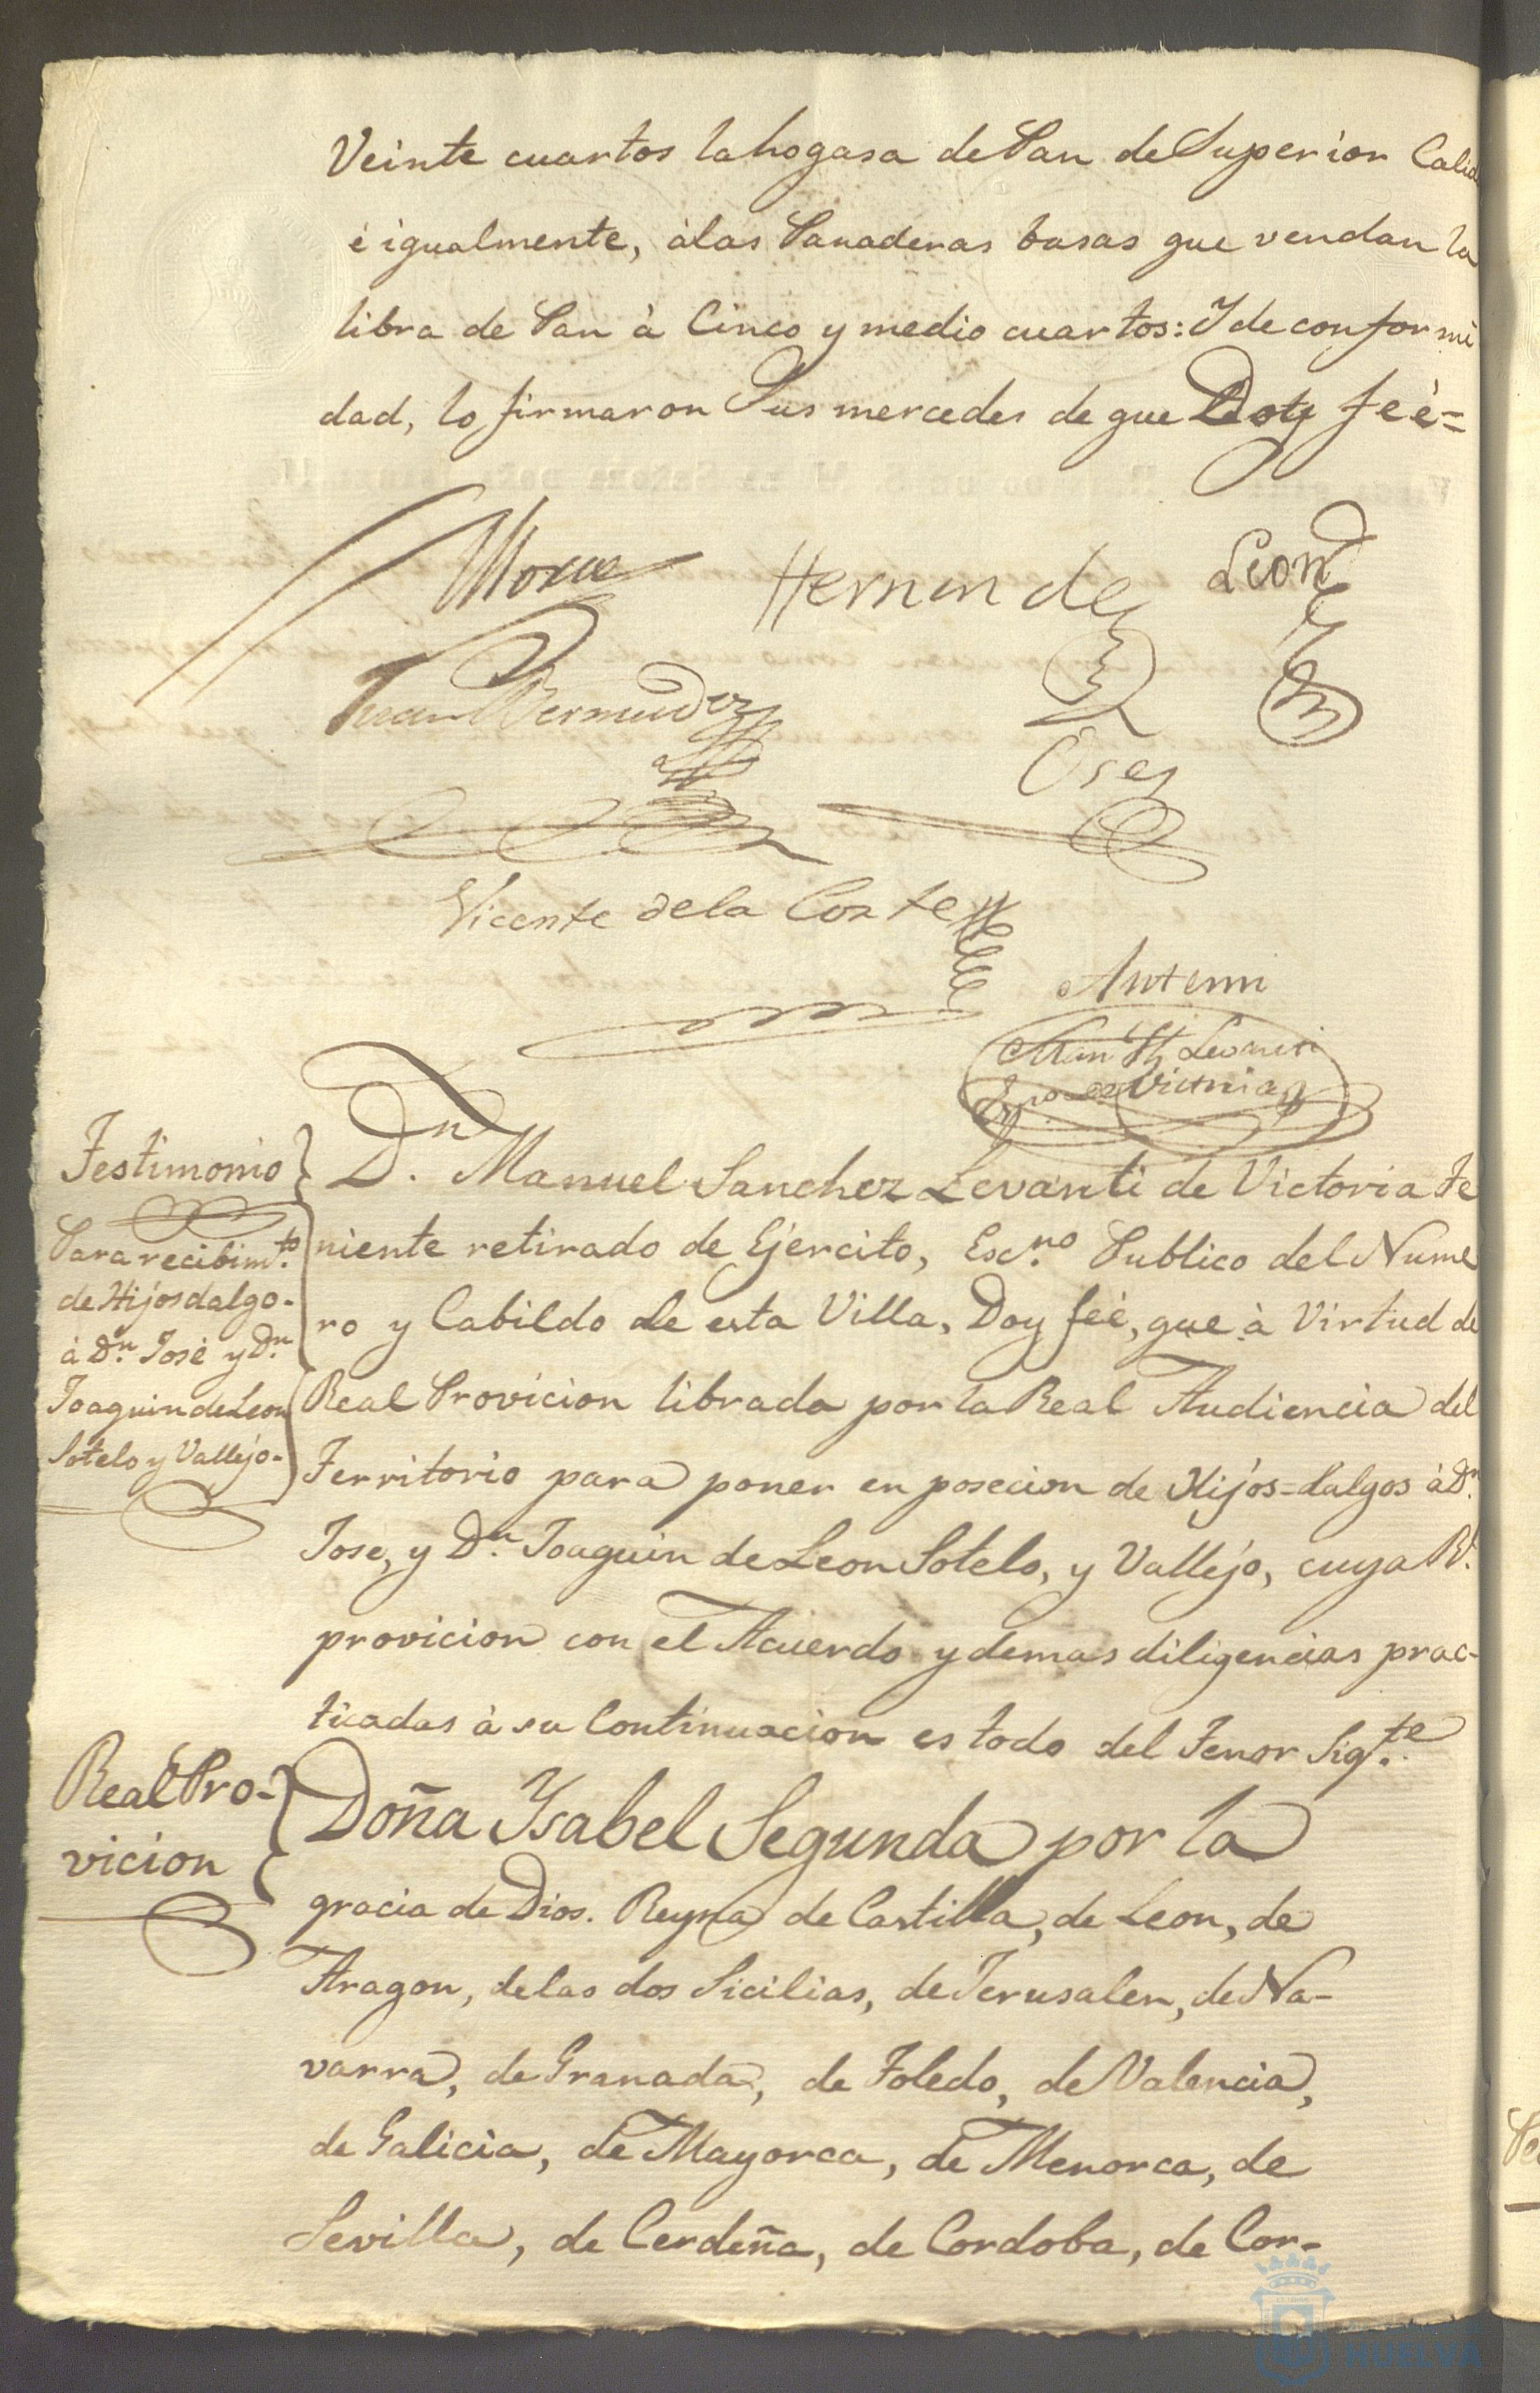 Veinte cuartos la hogasa de Pan de Superior Calid
é igualmente, à las Panaderas basas que vendan la
libra de Pan à Cinco y medio cuartos: Y de conformi
dad, lo firmaron Sus mercedes de que Doy feé=
Hernandez
Leon
Juan Bermudez
Oses
Vicente de la Corte
Antemi
Testimonio
Para recibim.to
de Hijosdalgo-
à D.n José y D.n
Joaquin de Leon
Sotelo y Vallejo-
D.n Manuel Sanchez Levanti de Victoria Te
niente retirado de Ejercito, Esc.no Publico del Nume
ro y Cabildo de esta Villa, Doy feé, que à Virtud de
Real Provicion librada por la Real Audiencia del
Territorio para poner en posecion de Hijos=dalgos à D.n
Jose, y D.n Joaquin de Leon Sotelo, y Vallejo, cuya R.l
provicion con el Acuerdo y demas diligencias prac-
ticadas à su Continuacion es todo del Tenor Sig.te
Real Pro-
vicion
Doña Ysabel Segunda por la
gracia de Dios. Reyna de Castilla, de Leon, de
Aragon, de las dos Sicilias, de Jerusalen, de Na-
varra, de Granada, de Toledo, de Valencia,
de Galicia, de Mayorca, de Menorca, de
Sevilla, de Cerdeña, de Cordoba, de Cor-
HUELVA